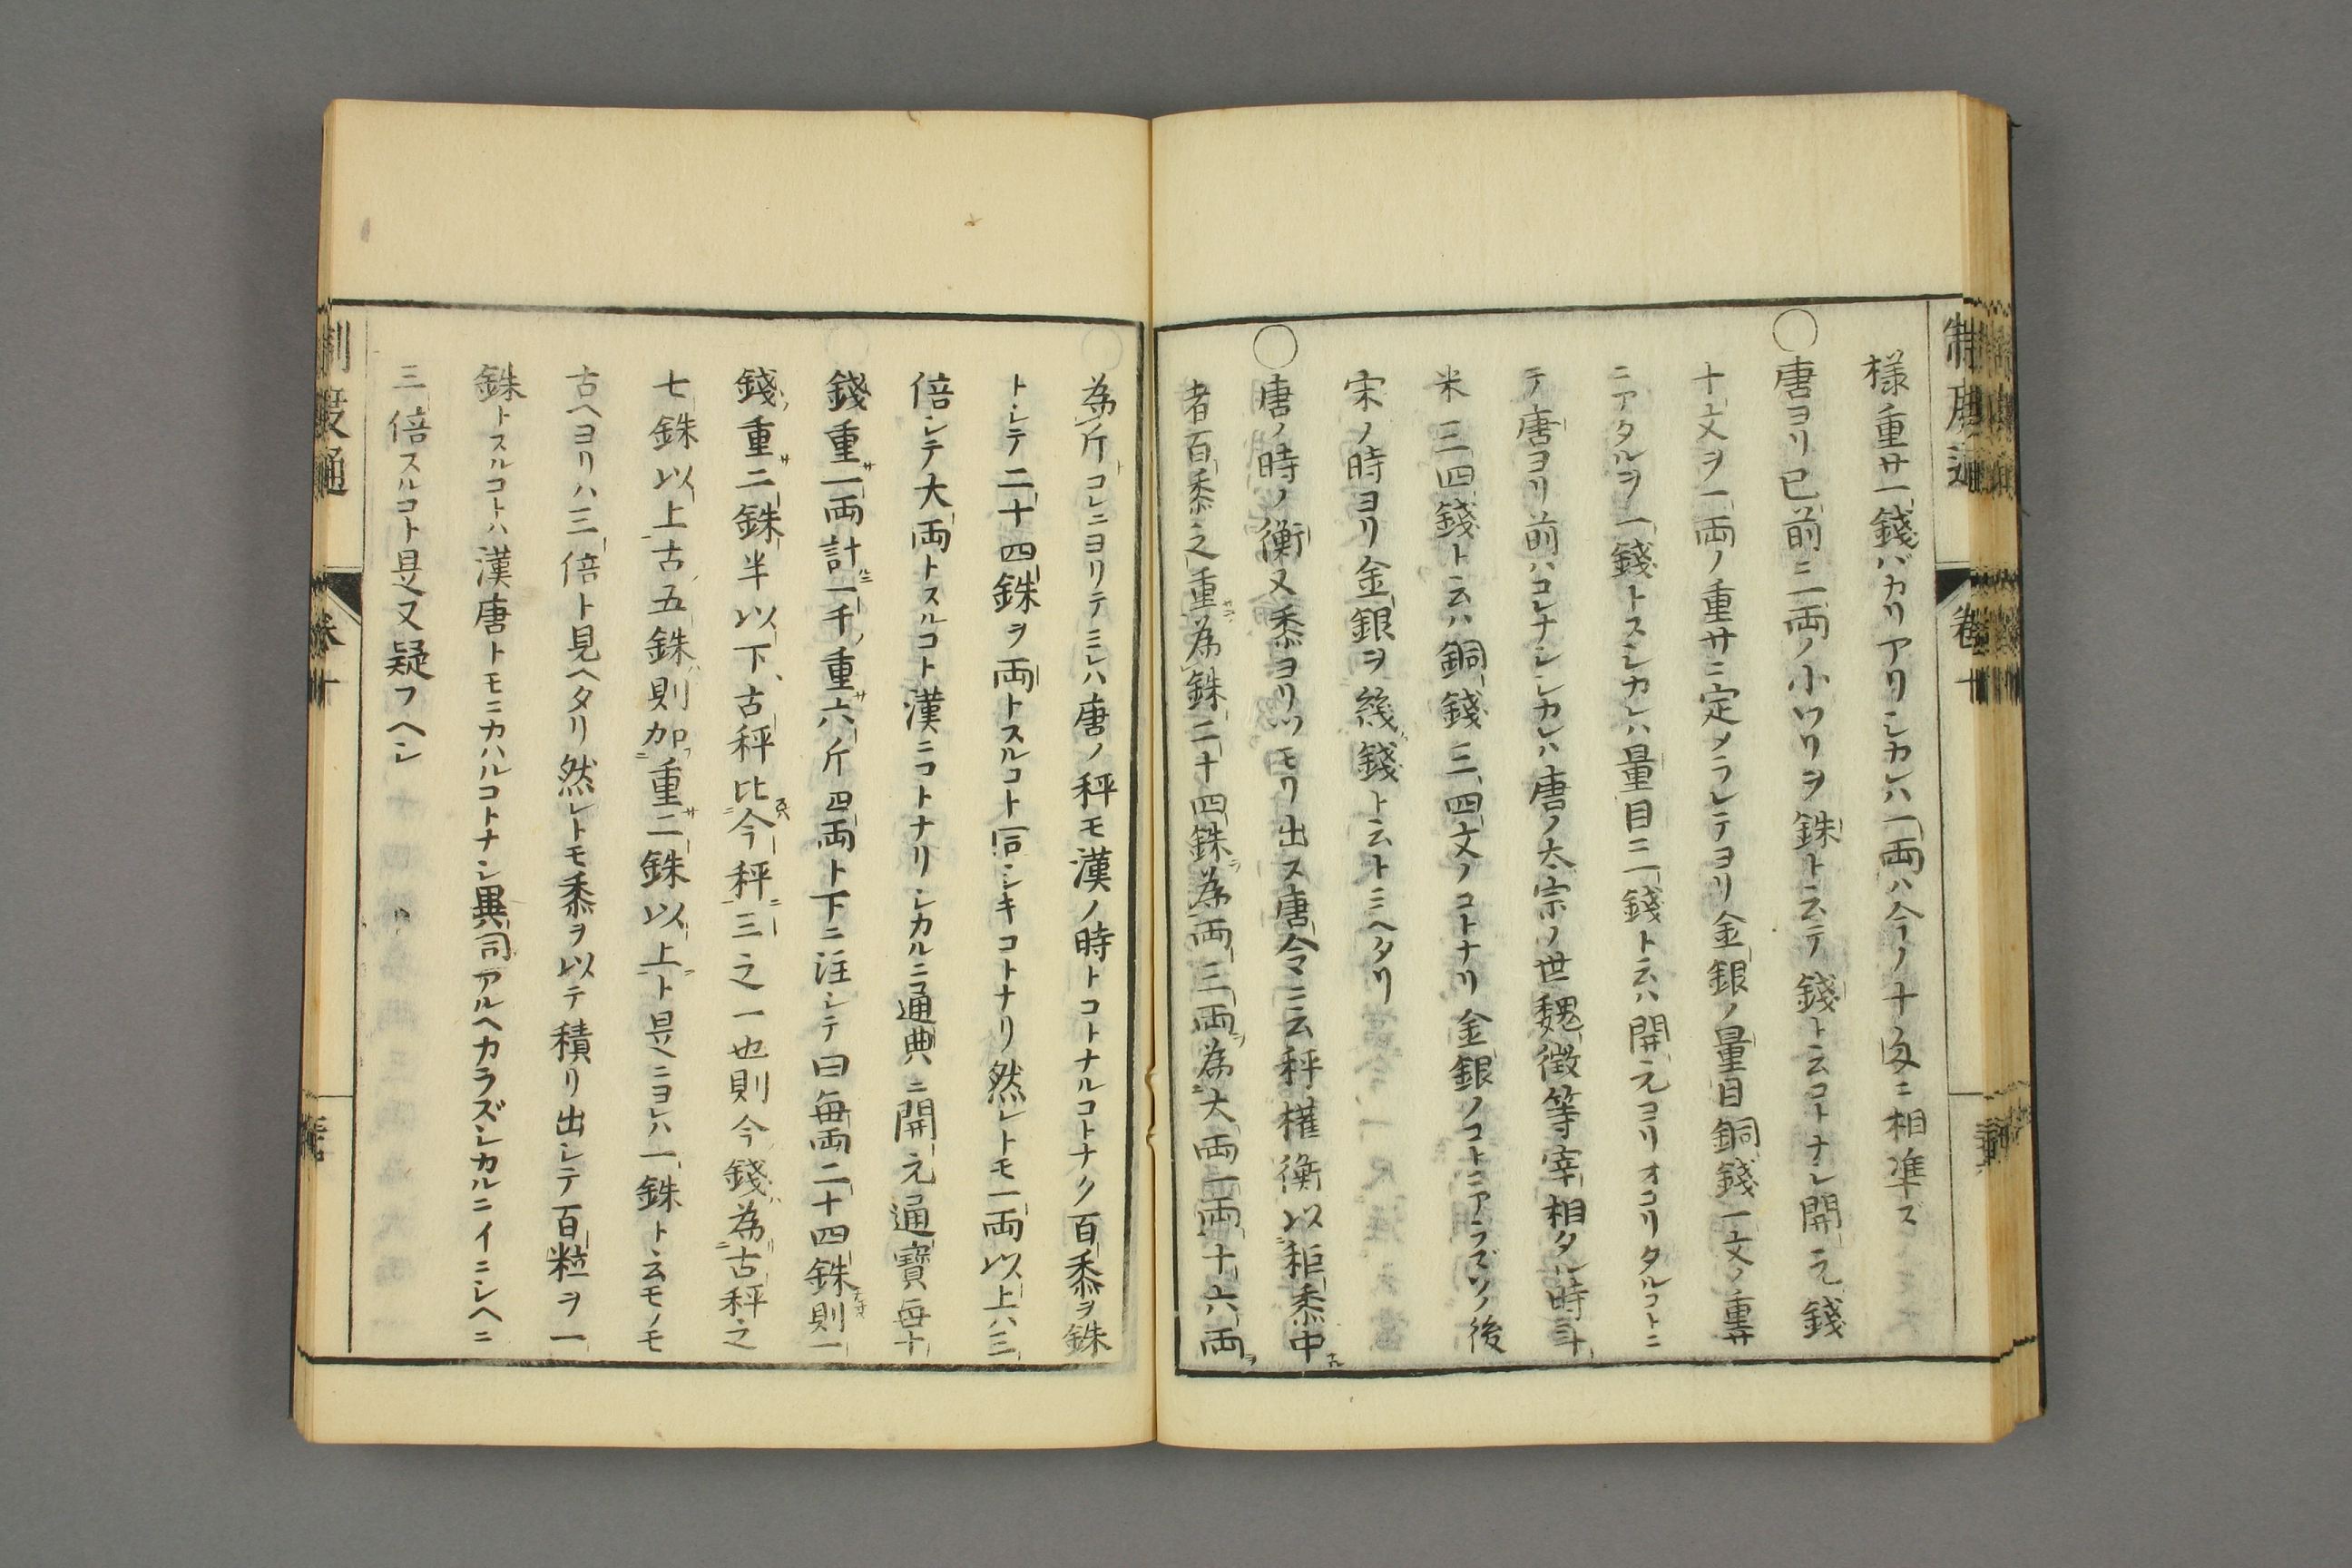 様重サ一錢バカリアリシカレハ一両ハ今ノ十匁ニ相準ズ
○唐ヨリ已前ニ一両ノ小ワリヲ銖ト云テ錢ト云コトナシ開元錢
十文ヲ一両ノ重サニ定メラレテヨリ金銀ノ量目銅錢一文ノ重サ
ニアタルヲ一錢トスシカレハ量目ニ一錢ト云ハ開元ヨリオコリタルコトニ
テ唐ヨリ前ハコレナシシカレハ唐ノ太宗ノ世魏徴等宰相タル時斗
米三四錢ト云ハ銅錢三四文ノコトナリ金銀ノコトニアラズソノ後
宋ノ時ヨリ金銀ヲ幾錢ト云トミヘタリ
○唐ノ時ノ衡又黍ヨリツモリ出ス唐令ニ云秤權衡以秬黍中
者百黍之重為銖二十四銖為両三両為大両一両十六両
為斤コレニヨリテミレハ唐ノ秤モ漢ノ時トコトナルコトナク百黍ヲ銖
トシテ二十四銖ヲ両トスルコト同シキコトナリ然レトモ一両以上ハ三
倍シテ大両トスルコト漢ニコトナリシカルニ通典ニ開元通寳毎十
錢重一両計一千重六斤四両ト下ニ注シテ曰毎両二十四銖則一
錢重二銖半以下古秤比今秤三之一也則今錢為古秤之
七銖以上古五銖則加重二銖以上ト是ニヨレハ一銖ト云モノモ
古ヘヨリハ三倍ト見ヘタリ然レトモ黍ヲ以テ積リ出シテ百粒ヲ一
銖トスルコトハ漢唐トモニカハルコトナシ異同アルヘカラズシカルニイニシヘニ
三倍スルコト是又疑フヘシ
制度通
卷十
制度通
卷十